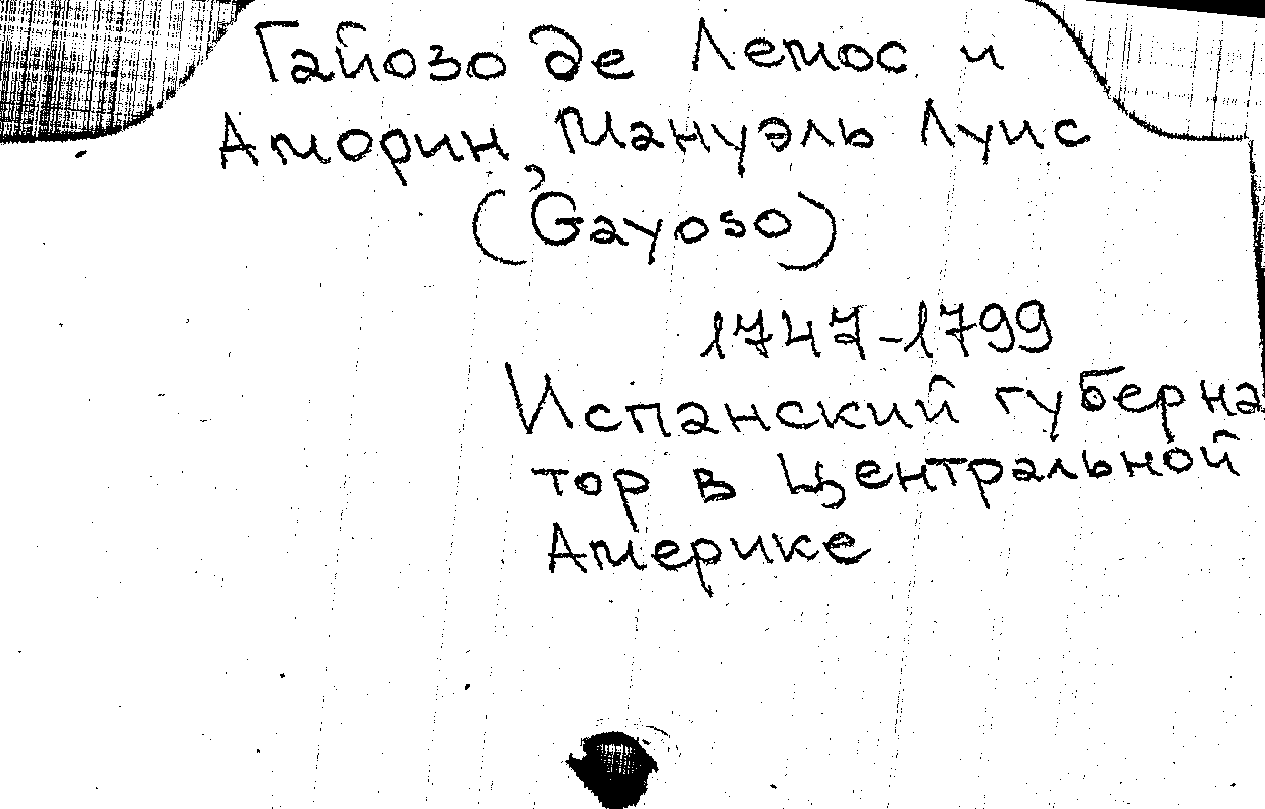 Гайозо де Лемос и
Аморин, Мануэль Луис
(Gayoso)
1747-1799
Испанский губерна
тор в Центральной
Америке